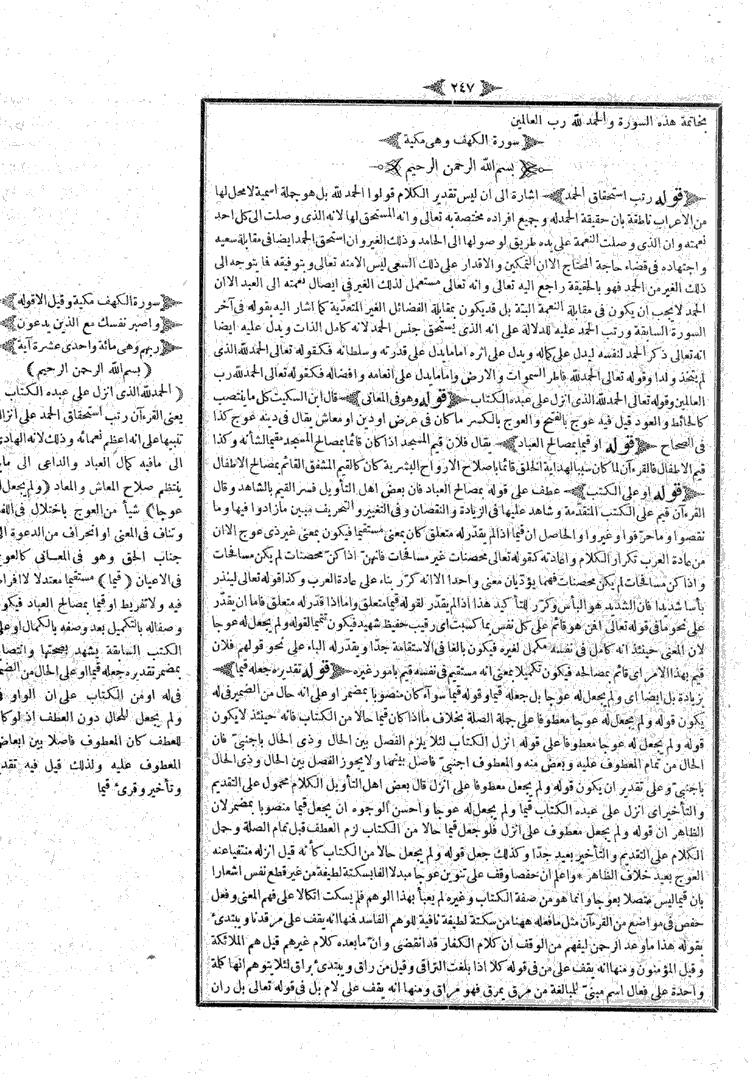 ٢٤٧
بخاتمة هذه السورة والحمد لله رب العالمين
سورة الكهف وهى مكية
بسم الله الرحمن الرحيم
قوله رتب استحقاق الحمد اشارة الى ان ليس تقدير الكلام قولوا الحمد لله بل هو جملة اسمية لا محل لها
من الاعراب ناطقة بان حقيقة الحمد له وجميع افراده مختصة به تعالى وانه المستحق لها لانه الذى وصلت الى كل احد
نعمته وان الذى وصلت النعمة على يده طريق لوصولها الى الحامد وذلك الغير وان استحق الحمد ايضا فى مقابلة سعيه
واجتهاده فى قضاء حاجة المحتاج الا ان التمكين والاقدار على ذلك السعى ليس الا منه تعالى وبتوفيقه فا يتوجه الى
ذلك الغير من الحمد فهو بالحقيقة راجع اليه تعالى وانه تعالى مستعمل لذلك الغير فى ايصال نعمته الى العبد الا ان
الحمد لا يجب ان يكون فى مقابلة النعمة البتة بل قد يكون بمقابلة الفضائل الغير المتعدّية كما اشار اليه بقوله فى آخر
السورة السابقة ورتب الحمد عليه للدلالة على انه الذى يستحق جنس الحمد لانه كامل الذات ويدل عليه ايضا
انه تعالى ذكر الحمد لنفسه ليدل على كماله ويدل على اثره اما مايدل على قدرته وسلطانه فكقوله تعالى الحمد لله الذى
لم يتخذ ولدا وقوله تعالى الحمد لله فاطر السموات والارض واما مايدل على انعامه وافضاله فكقوله تعالى الحمد لله رب
العالمين وقوله تعالى الحمد لله الذى انزل على عبده الكتاب قوله وهو فى المعانى قال ابن السكيت كل ما ينتصب
كالحائط والعود قيل فيه عوج بالفتح والعوج بالكسر ما كان فى عرض او دين او معاش يقال فى دينه عوج كذا
فى الصحاح قوله او قيما بمصالح العباد يقال فلان قيم المسجد اذا كان قائما بمصالح المسجد مقيما لشأنه وكذا
قيم الاطفال فالقرءآن لما كان سببا لهداية الخلق قائما باصلاح الارواح البشرية كان كالقيم المشفق القائم بمصالح الاطفال
قوله او على الكتب عطف على قوله بمصالح العباد فان بعض اهل التأويل فسر القيم بالشاهد وقال
القرءآن قيم على الكتب المتقدّمة وشاهد عليها فى الزيادة والنقصان وفى التغيير والتحريف مبين مازادوا فيها وما
نقصوا وما حرّفوا وغيروا والحاصل ان قيما اذا لم يقدّر له متعلق كان بمعنى مستقيما فيكون بمعنى غير ذى عوج الا ان
من عادة العرب تكرار الكلام واعادته كقوله تعالى محصنات غير مسافحات فانهنّ اذا كنّ محصنات لم يكن مسافحات
واذا كن مسافحات لم يكن محصنات فهما يؤدّيان معنى واحدا الا انه كرّر بناء على عادة العرب وكذا قوله تعالى لينذر
بأسا شديدا فان الشديد هو البأس وكرّر للتأكيد هذا اذا لم يقدّر لقوله قيما متعلق واما اذا قدّر له متعلق فاما ان يقدّر
على نحو ما فى قوله تعالى افمن هو قائم على كل نفس بما كسبت اى رقيب حفيظ شهيد فيكون تتميما لقوله ولم يجعل له عوجا
لان المعنى حينئذ انه كامل فى نفسه مكمل لغيره فيكون بالغا فى الاستقامة جدّا ويقدّر له الباء على نحو قولهم فلان
قيم بهذا الامر اى قائم بمصالحه فيكون تكميلا بمعنى انه مستقيم فى نفسه قيم بامور غيره قوله تقديره جعله قيما
بزيادة بل ايضا اى ولم يجعل له عوجا بل جعله قيما وقوله قيما سواء كان منصوبا بمضمر او على انه حال من الضمير فى له
يكون قوله ولم يجعل له عوجا معطوفا على جملة الصلة بخلاف ما اذا كان قيما حالا من الكتاب فانه حينئذ لا يكون
قوله ولم يجعل له عوجا معطوفا على قوله انزل الكتاب لئلا يلزم الفصل بين الحال وذى الحال باجنبىّ فان
الحال من تمام المعطوف عليه وبعض منه والمعطوف اجنبىّ فاصل بينهما ولا يجوز الفصل بين الحال وذى الحال
باجنبىّ وعلى تقدير ان يكون قوله ولم يجعل معطوفا على انزل قال بعض اهل التأويل الكلام محمول على التقديم
والتأخير اى انزل على عبده الكتاب قيما ولم يجعل له عوجا واحسن الوجوه ان يجعل قيما منصوبا بمضمر لان
الظاهر ان قوله ولم يجعل معطوف على انزل فلو جعل قيما حالا من الكتاب لزم العطف قبل تمام الصلة وحمل
الكلام على التقديم والتأخير بعيد جدّا وكذلك جعل قوله ولم يجعل حالا من الكتاب كأنه قيل انزله منتفيا عنه
العوج بعيد خلاف الظاهر * واعلم ان حفصا وقف على تنوين عوجا مبدلا الفا بسكتة لطيفة من غير قطع نفس اشعارا
بان قيما ليس متصلا بعوجا وانما هو من صفة الكتاب وغيره لم يعبأ بهذا الوهم فلم يسكت اتكالا على فهم المعنى وفعل
حفص فى مواضع من القرءآن مثل ما فعله ههنا من سكتة لطيفة نافية للوهم الفاسد فمنها انه يقف على مرقدنا ويبتدئ
بقوله هذا ما وعد الرحمن ليفهم من الوقف ان كلام الكفار قد انقضى وانّ ما بعده كلام غيرهم قيل هم الملائكة
وقيل المؤمنون ومنها انه يقف على من فى قوله كلا اذا بلغت التراقى وقيل من راق ويبتدئ براق لئلا يتوهم انها كلمة
واحدة على فعال اسم مبنىّ للمبالغة من مرق يمرق فهو مراق ومنها انه يقف على لام بل فى قوله تعالى بل ران
سورة الكهف مكية وقيل الا قوله
واصبر نفسك مع الذين يدعون
ربهم وهى مائة واحدى عشرة آية
(بسم الله الرحمن الرحيم)
(الحمد لله الذى انزل على عبده الكتاب
يعنى القرءآن رتب استحقاق الحمد على انزاله
تنبيها على انه اعظم نعمائه وذلك لانه الهادى
الى مافيه كمال العباد والداعى الى ما به
ينتظم صلاح المعاش والمعاد (ولم يجعل له
عوجا) شيأ من العوج باختلال فى اللفظ
وتناف فى المعنى او انحراف من الدعوة الى
جناب الحق وهو فى المعانى كالعوج
فى الاعيان (قيما) مستقيما معتدلا لا افراط
فيه ولا تفريط او قيما بمصالح العباد فيكون
وصفا له بالتكميل بعد وصفه بالكمال او على
الكتب السابقة يشهد بصحتها وانتصابه
بمضمر تقديره جعله قيما او على الحال من الضمير
فى له او من الكتاب على ان الواو فى
ولم يجعل للحال دون العطف اذ لو كان
للعطف كان المعطوف فاصلا بين ابعاض
المعطوف عليه ولذلك قيل فيه تقديم
وتأخير وقرئ قيما